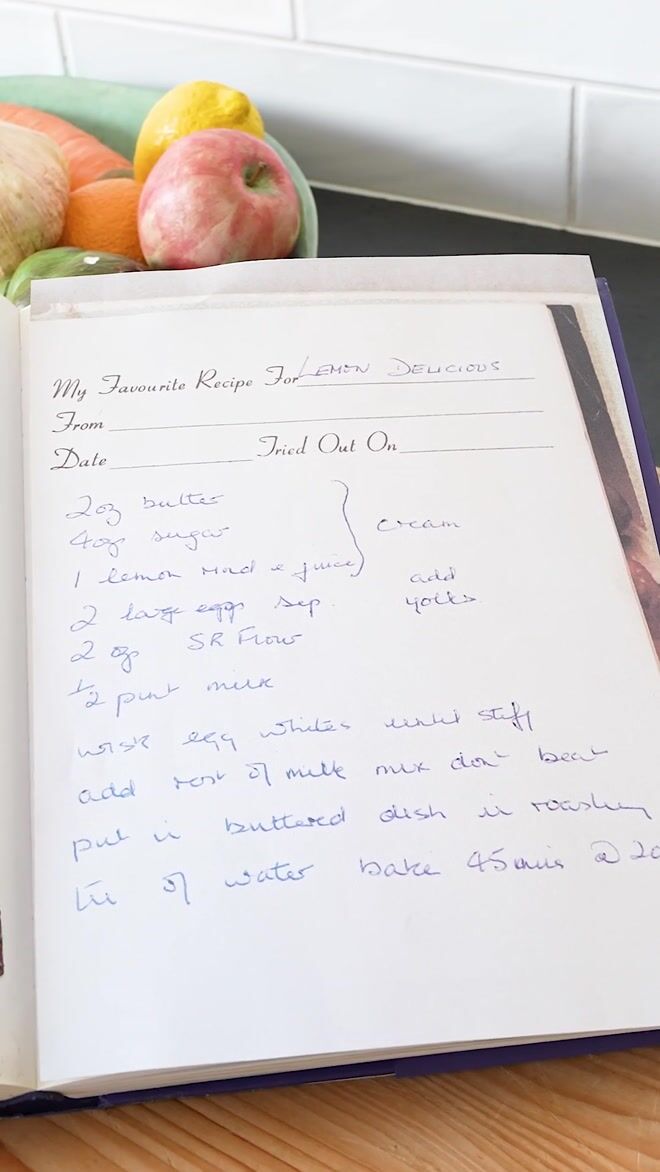 My Favourite Recipe For LEMON DELICIOUS
From
Date Tried Out On
2oz butter
4ozs sugar cream
1 lemon rind & juice
2 large eggs sep. add yolks
2 ozs SR Flour
1/2 pint milk
wisk egg whites until stiff
add rest of milk mix don't beat
put in buttered dish in roasting
tin of water bake 45mins @ 20